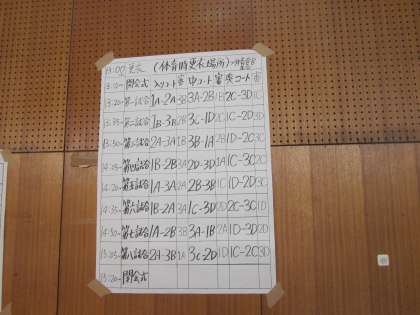 13:00 更衣 (体育時更衣場所)
13:10~ 開会式 入リコート 審 中コート 審 奥コート 審
13:20~ 第一試合 1A-2A 3B 3A-2B 1B 2C-3D 1C
13:35~ 第二試合 1B-3B 3C-1D 1C-2D 3D
13:50~ 第三試合 2A-3A 1B 3B-1A 2B 1D-2D 3C
14:05~ 第四試合 1B-2B 3A 2D-3D 1A 1C-3C 2C
14:20~ 第五試合 1A-3A 2A 2B-3B 1C 1D-2D 3C
14:35~ 第六試合 1B-2A 3A 1C-3D 2D 2C-3C 1D
14:50~ 第七試合 1A-2B 3B 3A-1B 2A 1D-3D 2D
15:05~ 第八試合 2A-3B 1A 3C-2D 1D 1C-2C 3D
15:20~ 閉会式